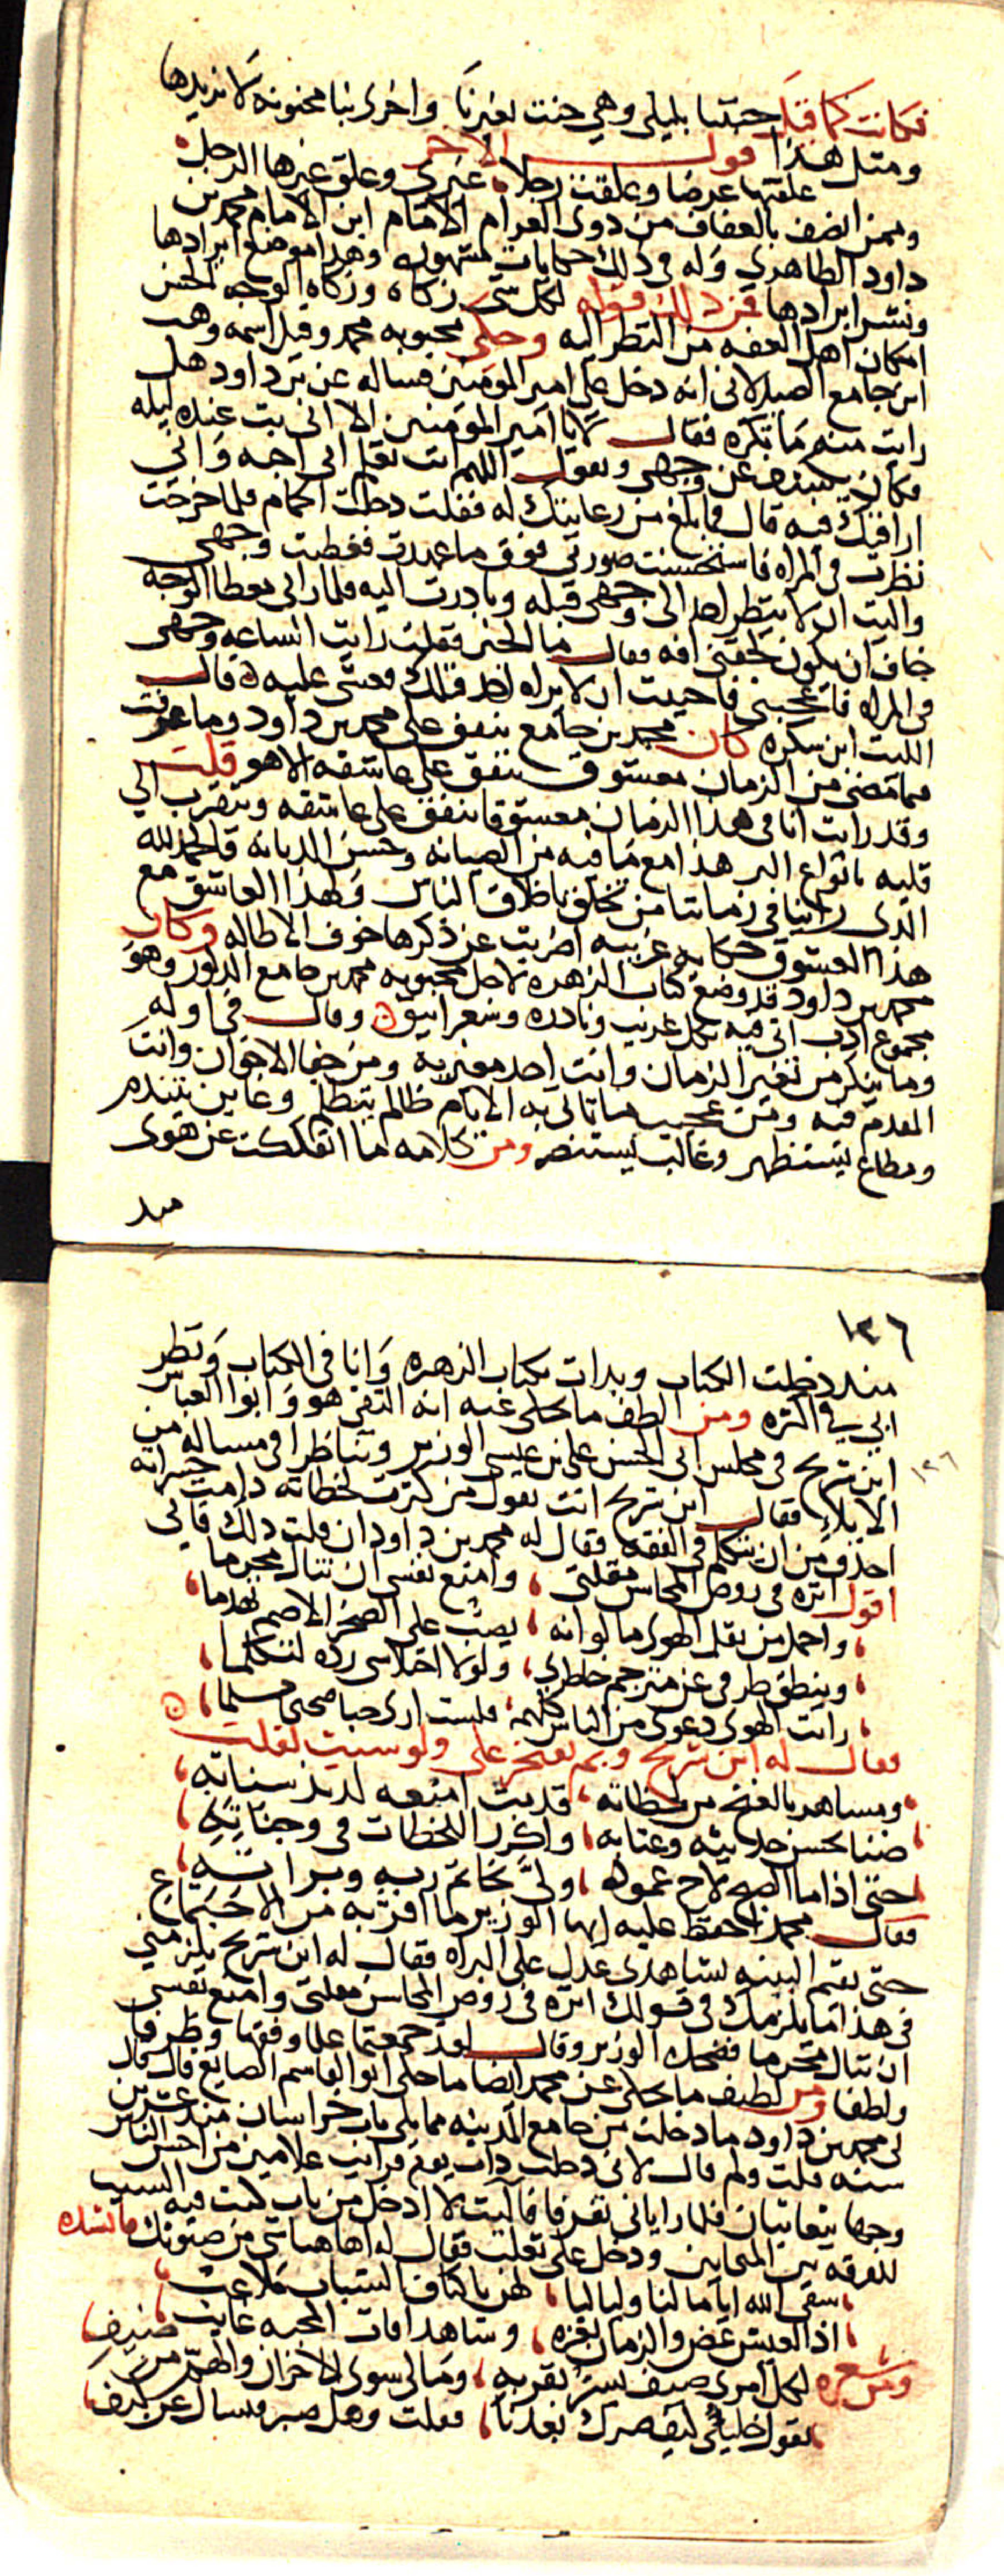 فكانت كما قيل جننا بليلى وهي جنت بغيرنا واخرى بنا مجنونة لا نريدها
ومثل هذا قول الاخر
علقتها عرضا وعلقت رجلا غيري وعلق غيرها الرجل
وممن اتصف بالعفاف من ذوى الغرام الامام ابن الامام محمد بن
داود الظاهري وله في ذلك حكايات مشهوره وهذا موضع ايرادها
ونشر ابرادها فمن ذلك قوله لكل شى زكاه وزكاه الوجه الحسن
امكان اهل العفه من النظر اليه وحكى محبوبه محمد وقيل اسمه وهب
ابن جامع الصيدلاني انه دخل على امير المومنين فساله عن بن داود هل
رايت منه ما تكره فقال لا يا امير المومنين الا انى بت عنده ليله
فكان يكشف عن وجهى ويقول اللهم انت تعلم انى احبه وانى
اراقبك فيه قال فما بلغ من رعايتك له فقلت دخلت الحمام فلما خرجت
نظرت في المراه فاستحسنت صورتى فوق ما عهدت فغطيت وجهى
واليت ان لا ينظر احد الى وجهى قبله وبادرت اليه فلما رانى مغطا الوجه
خاف ان يكون لحقنى افه فقال ما الخبر فقلت رايت الساعه وجهى
في المراه فاعجبنى فاحببت ان لا يراه احد قبلك فغشى عليه قال
الليث ابن سكره كان محمد بن جامع ينفق على محمد بن داود وما عرفت
فما مضى من الزمان معشوق ينفق على عاشقه الا هو قلت
وقد رايت انا في هذا الزمان معشوقا ينفق على عاشقه ويتقرب الى
قلبه بانواع البر هذا مع ما فيه من الصيانه وحسن الديانه فالحمد لله
الذى راينا في زماننا من تخلق باخلاق الناس ولهذا العاشق مع
هذا المعشوق حكايه غريبه اضربت عن ذكرها خوف الاطاله وكان
محمد بن داود قد وضع كتاب الزهره لاجل محبوبه محمد بن جامع المذكور وهو
مجموع ادب اتى فيه بكل غريب ونادره وشعر انيق وقال في اوله
وما ينكر من تغير الزمان وانت احد مغيريه ومن جفا الاخوان وانت
المقدم فيه ومن عجيب ما ياتى به الايام ظالم يتظلم وغابن يتندم
ومطاع يستظهر وغالب يستنصر ومن كلامه ما انفككت عن هوى
منذ
١٣٦
منذ دخلت الكتاب وبدات بكتاب الزهره وانا في الكتاب ونظر
ابي في اكثره ومن الطف ما يحكى عنه انه التقى هو وابو العباس
ابن شريح في مجلس ابى الحسن على بن عيسى الوزير وتناظرا في مساله من
١٣٦
الايلاء فقال ابن شريح انت تقول من كثرت لحظاته دامت حسراته
احذق من ان تتكلم في الفقه فقال له محمد بن داود ان قلت ذلك فانى
اقول انزه في روض المحاسن مقلتى وامنع نفسى ان تنال محرما
واحمل من ثقل الهوى ما لو انه يصب على الصخر الاصم تهدما
وينطق طرفى عن مترجم خاطرى ولولا اختلاسى رده لتكلما
رايت الهوى دعوى من الناس كلهم فلست ارى حبا صحيحا مسلما
فقال له ابن شريح وبم تفتخر على ولو شيت لقلت
ومساهر بالغنج من لحظاته قد بت امنعه لذيذ سناته
ضنا بحسن حديثه وعتابه واكرر اللحظات في وجناته
حتى اذا ما الصبح لاح عموده ولى بخاتم ربه وبراته
فقال محمد يحفظ عليه ايها الوزير ما اقر به من الاجتماع
حتى يقيم البينه بشاهدى عدل على البراه فقال له ابن شريح يلزمنى
في هذا ما يلزمك في قولك انزه في روض المحاسن مقلتى وامنع نفسى
ان تنال محرما فضحك الوزير وقال لقد جمعتما علما وفقها وظرفا
ولطفا ومن لطيف ما يحكى عن محمد ايضا ما حكى ابو القاسم الصايغ قال قال
لى محمد بن داود ما دخلت من جامع المدينه مما يلى باب خراسان منذ عشرين
سنه قلت ولم قال لانى دخلت ذات يوم فرايت غلامين من احسن الناس
وجها يتعاتبان فلما راياني تفرقا فآليت لا ادخل من باب كنت فيه السبب
للفرقه بين المحابين ودخل على ثعلب فقال له اهاهنا شى من صبوتك فانشده
سقى الله اياما لنا ولياليا لهن باكناف الشباب ملاعب
اذ العيش غض والزمان بغره وشاهد افات المحبه غايب
ومن شعره لكل امرى ضيف يسر بقربه ومالى سوى الاحزان والهم من ضيف
يقول خليلى كيف صبرك بعدنا فقلت وهل صبر فيسال عن كيف